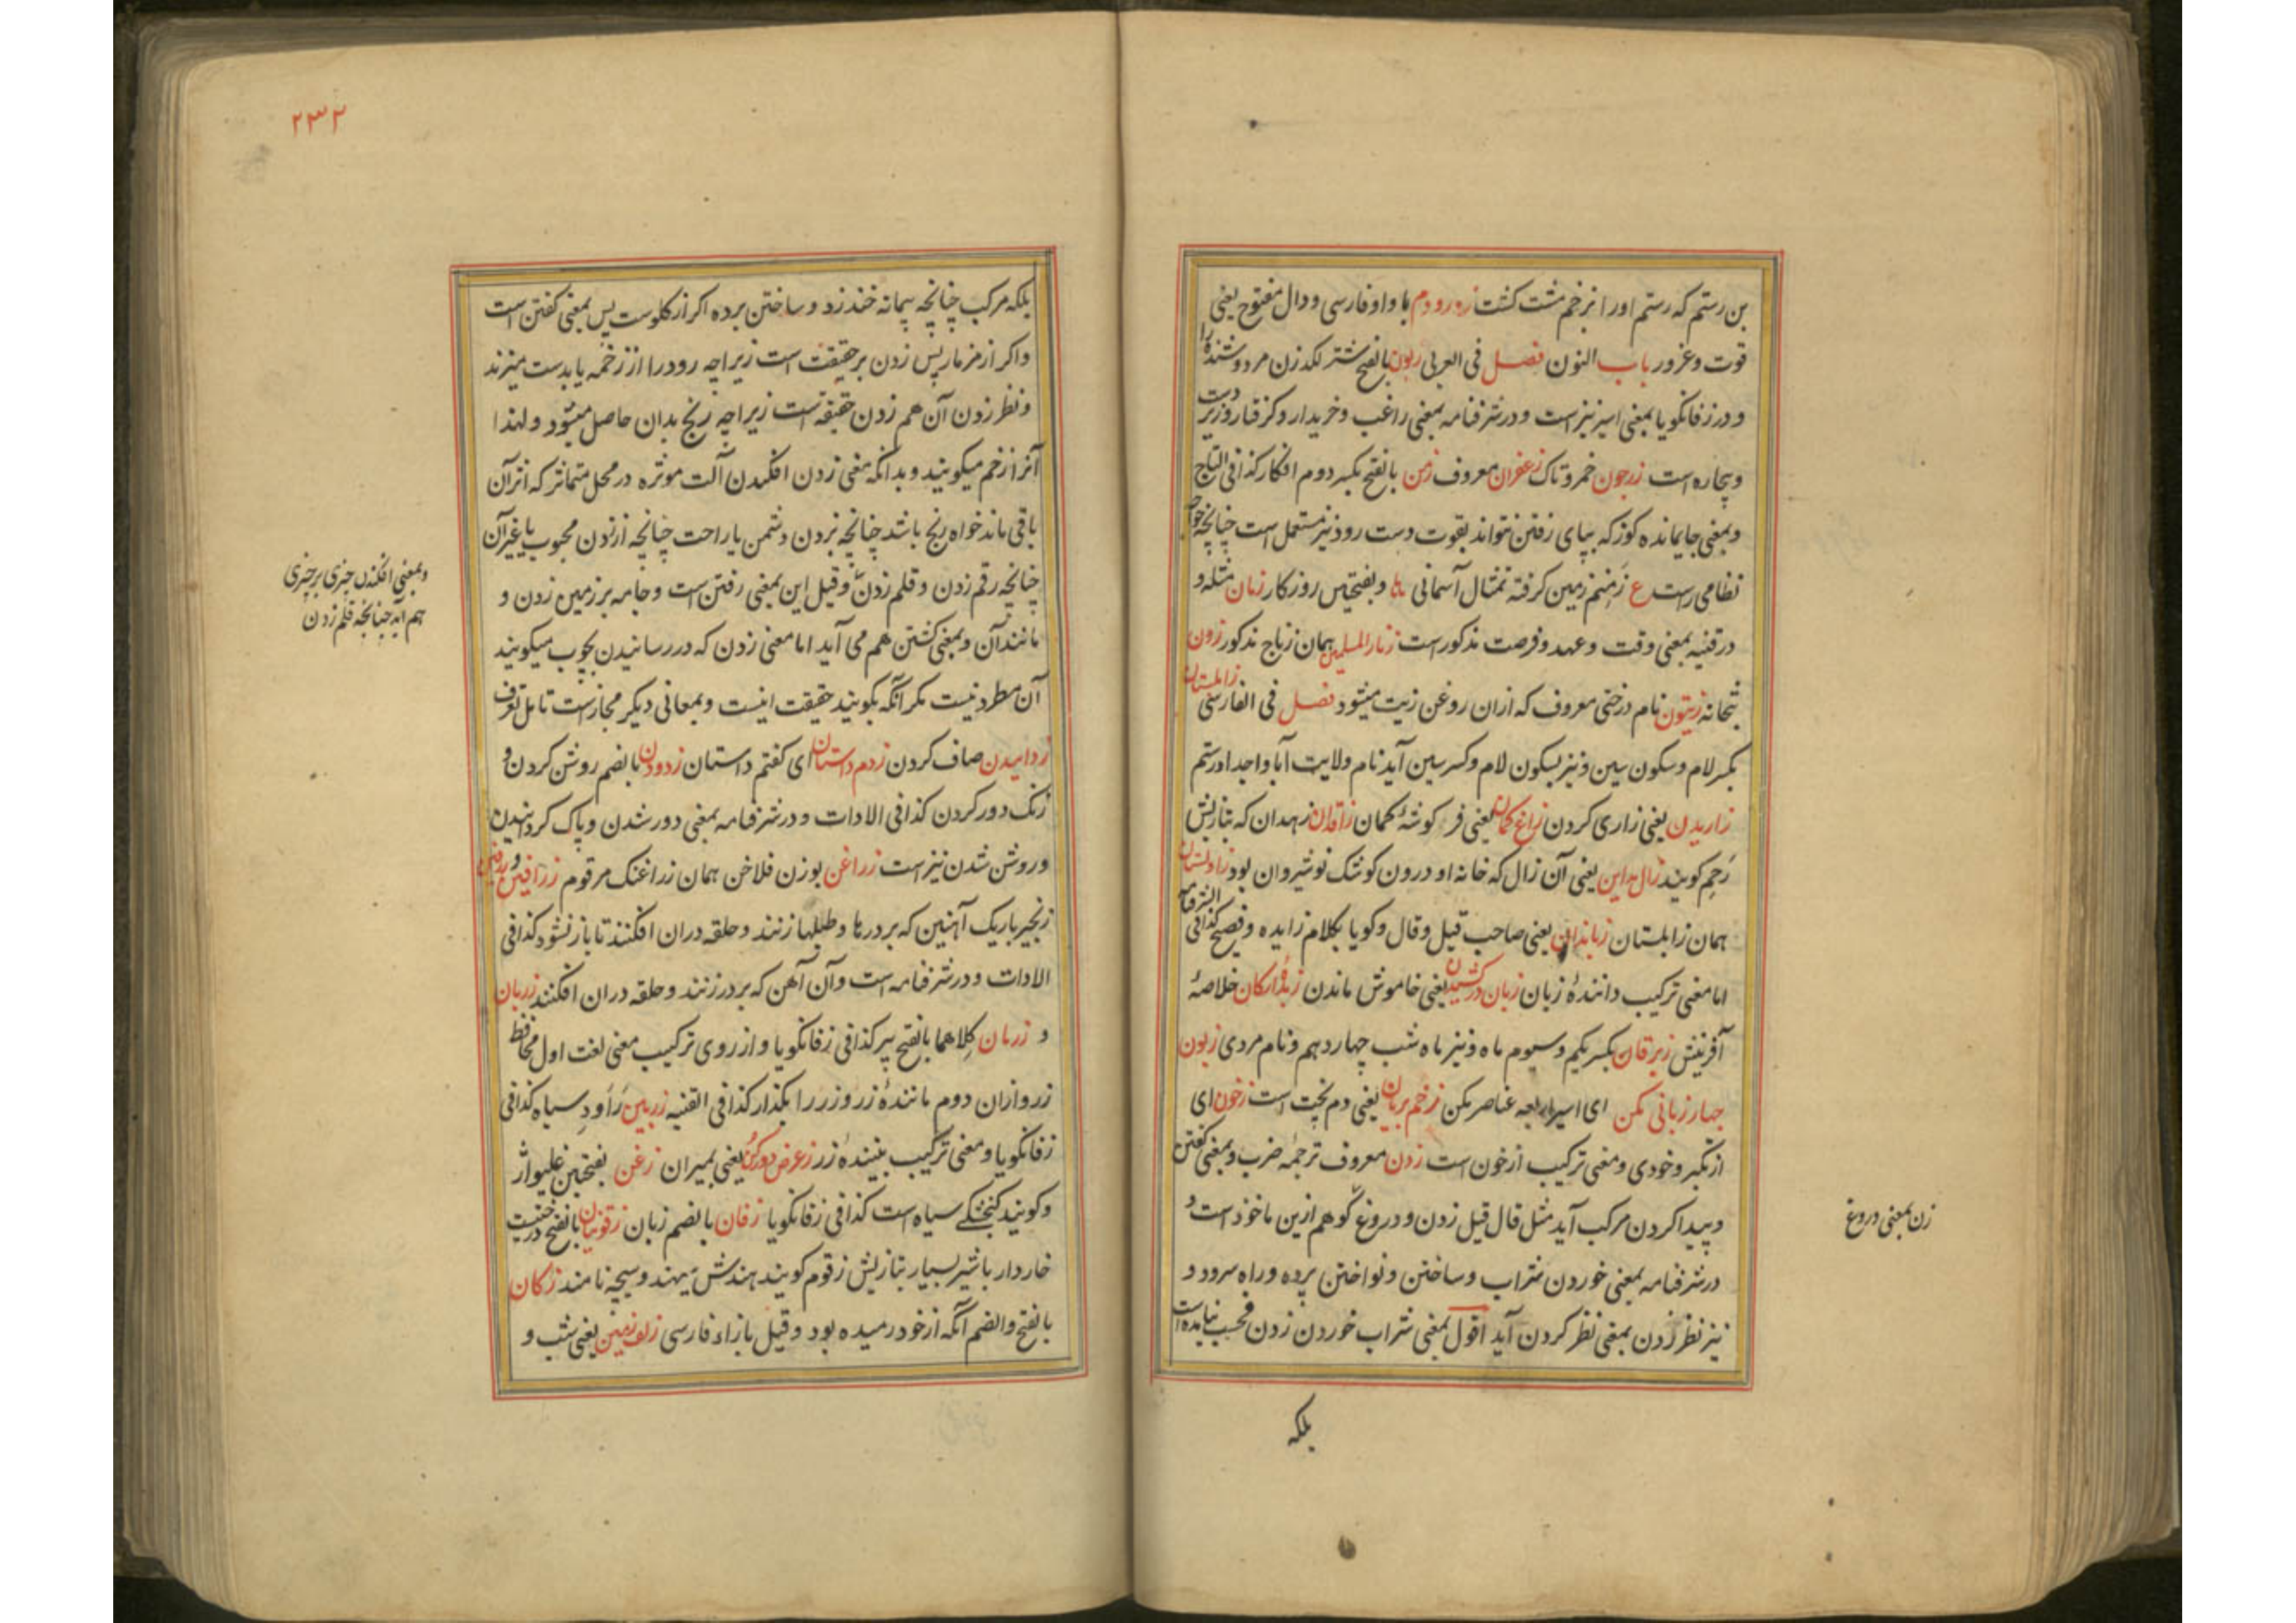 بن رستم که رستم اورا بزخم مشت کشت زه رودم با واو فارسی و دال مفتوح یعنی
قوت و غرور باب النون فصل فی العربی زبون بالفتح شتر لکدزن مر دوشنده را
و در زفانکویا بمعنی اسیر نیز است و در شرفنامه بمعنی راغب و خریدار و کرفتار و زیر دست
و بیچاره است زرجون خمر و تاک زعفران معروف زمن بالفتح بکسر دوم افکار کذا فی التاج
و بمعنی جایمانده کوز که بپای رفتن نتواند بقوت دست رود نیز مستعمل است چنانچه خواجه
نظامی راست ع زمنم زمین کرفته تمثال آسمانی ها و بفتحتین روزکار زمان مثله و
در قنیه بمعنی وقت و عهد و فرصت مذکور است همان زجاج مذکور زون
بتخانه زیتون نام درختی معروف که ازان روغن زیت میشود فصل فی الفارسی زابلستان
بکسر لام و سکون سین و نیز بسکون لام و کسر سین آید نام ولایت آبا و اجداد رستم
زاریدن یعنی زاری کردن زاغ کمان یعنی فر کوشهٔ کمان زاقدان زهدان که بتازیش
رحم کویند زال مداین یعنی آن زال که خانه او درون کوشک نوشیروان بود زاولستان
همان زابلستان زباندان یعنی صاحب قیل و قال و کویا بکلام زایده و فصیح کذا فی الشرفنامه
اما معنی ترکیب دانندهٔ زبان زبان درکشیدن یعنی خاموش ماندن زبدهٔ ارکان خلاصهٔ
آفرینش زبرقان بکسر یکم و سیوم ماه و نیز ماه شب چهاردهم و نام مردی زبون
چهار زبانی مکن ای اسیر اربعه عناصر مکن زخم بریان یعنی دم پخت است زخون ای
از تکبر و خودی و معنی ترکیب از خون است زدن معروف ترجمه ضرب و بمعنی کفتن
و پیدا کردن مرکب آید مثل قال قیل زدن و دروغ کو هم ازین ماخوذ است و
در شرفنامه بمعنی خوردن شراب و ساختن و نواختن پرده و راه سرود و
نیز نظر زدن بمعنی نظر کردن آید اقول بمعنی شراب خوردن زدن فحسب نیامده است
زن بمعنی دروغ
بلکه
۲۳۲
بلکه مرکب چنانچه پیمانه خند زد و ساختن برده اکر از کلوست پس بمعنی کفتن است
و اکر از مزمار پس زدن بر حقیقت است زیراچه رود را از زخمه یا بدست میزند
و نظر زدن آن هم زدن حقیقه است زیراچه رنج بدان حاصل میشود و لهذا
آنرا زخم میکویند و بدانکه معنی زدن افکندن آلت موثره در محل متماثر که اثر آن
باقی ماند خواه رنج باشد چنانچه زدن دشمن یا راحت چنانچه زدن محبوب یا غیر آن
چنانچه رقم زدن و قلم زدن و قیل این بمعنی رفتن است و جامه بر زمین زدن و
مانند آن و بمعنی کشتن هم می آید اما معنی زدن که در رسانیدن بچوب میکویند
آن مطرد نیست مکر آنکه بکویند حقیقت اینست و بمعانی دیکر مجاز است تامل تعرف
زداییدن صاف کردن زدم داستان ای کفتم داستان زدودن بالضم روشن کردن و
زنک دور کردن کذا فی الادات و در شرفنامه بمعنی دور شدن و پاک کردانیدن
و روشن شدن نیز است زراغن بوزن فلاخن همان زراغنک مرقوم زرافین و
زنجیر باریک آهنین که بر درها و طبلها زنند و حلقه دران افکنند تا باز نشود کذا فی
الادات و در شرفنامه است و آن آهن که بر در زنند و حلقه دران افکنند زربان
و زرمان کلاهما بالفتح پیر کذا فی زفانکویا و از روی ترکیب معنی لغت اول محافظ
زر و ازان دوم مانندهٔ زر و زر را بکذار کذا فی القنیه زربین سیاه کذا فی
زفانکویا و معنی ترکیب بینندهٔ زر زعرض دور کن یعنی بمیران زغن بفتحتین غلیواژ
و کویند کنجشکی سیاه است کذا فی زفانکویا زفان بالضم زبان زقونیان بالفتح درختیست
خاردار با شیر بسیار بتازیش زقوم کویند هندش تهند و سیجه نامند زکان
بالفتح و الضم آنکه از خود رمیده بود و قیل بازاء فارسی زلف زمین یعنی شب و
و بمعنی افکندن چیزی بر چیزی
هم آید چنانچه قلم زدن